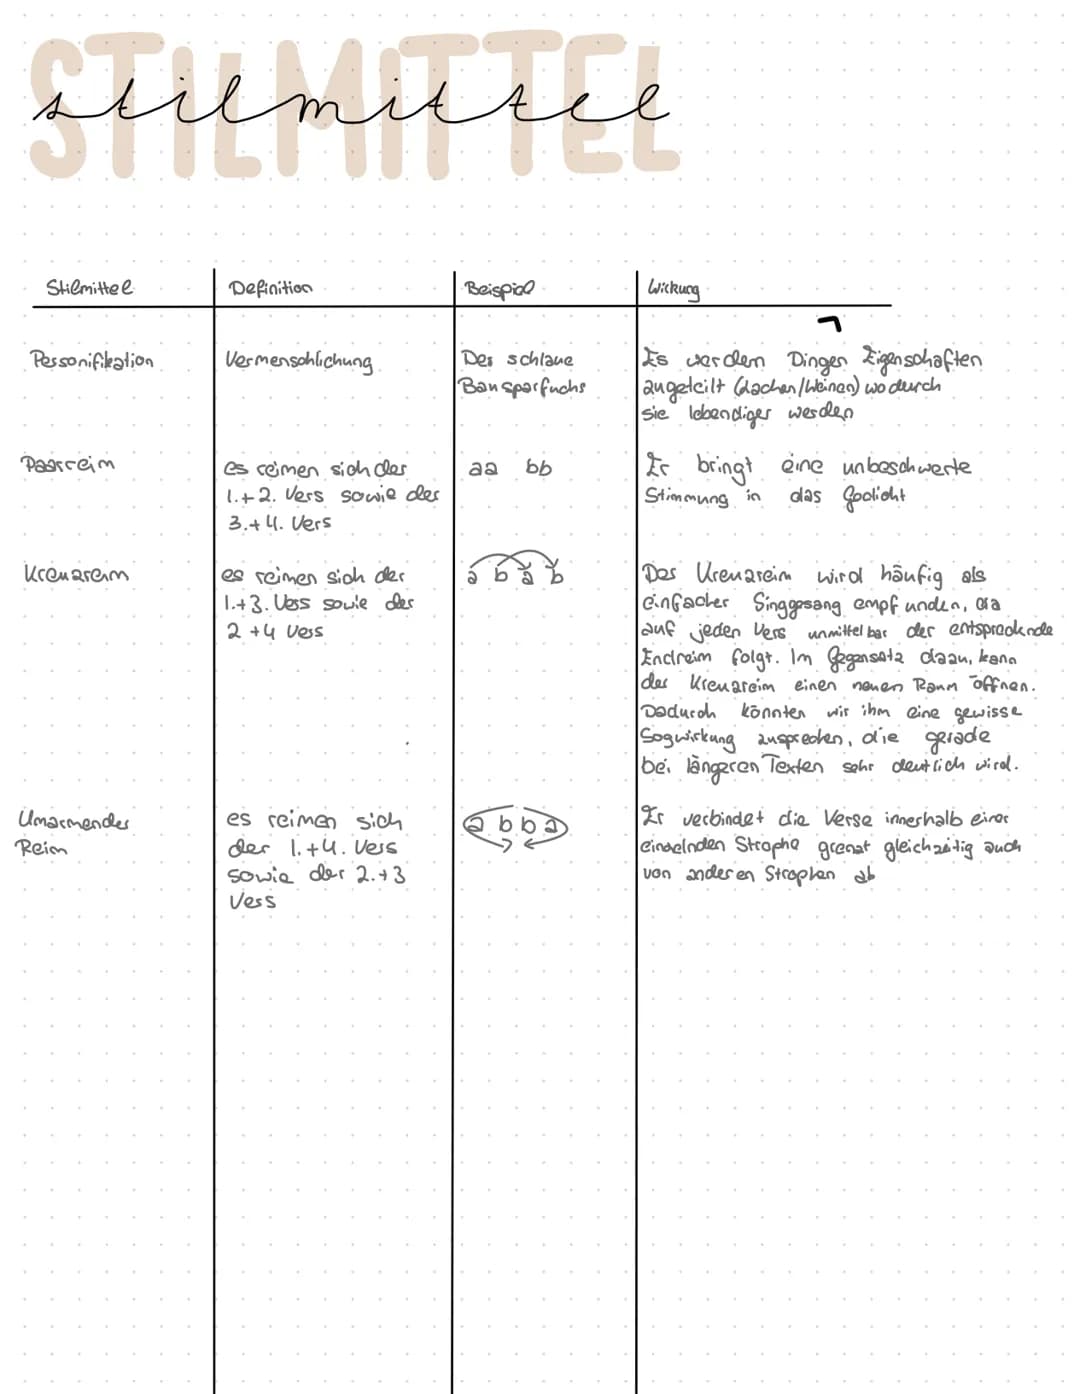 STILMITTEL
stilmittel
Stilmittel Definition Beispiel Wirkung
Personifikation Vermenschlichung Der schlaue Es werden Dingen Eigenschaften
Bausparfuchs zugeteilt (Lachen/Weinen) wodurch
sie lebendiger werden
Paarreim es reimen sich der aa bb Er bringt eine unbeschwerte
1.+2. Vers sowie der Stimmung in das Gedicht
3.+4. Vers
Kreuzreim es reimen sich der a b a b Der Kreuzreim wird häufig als
1.+3. Vers sowie der einfacher Singgesang empfunden, da
2+4 Vers auf jeden Vers unmittelbar der entsprechnde
Endreim folgt. Im Gegensatz dazu, kann
der Kreuzreim einen neuen Raum öffnen.
Dadurch könnten wir ihm eine gewisse
Sogwirkung zusprechen, die gerade
bei längeren Texten sehr deutlich wird.
Umarmender es reimen sich a b b a Er verbindet die Verse innerhalb einer
Reim der 1.+4. Vers einzelnden Strophe grenzt gleichzeitig auch
sowie der 2.+3 von anderen Strophen ab
Vers